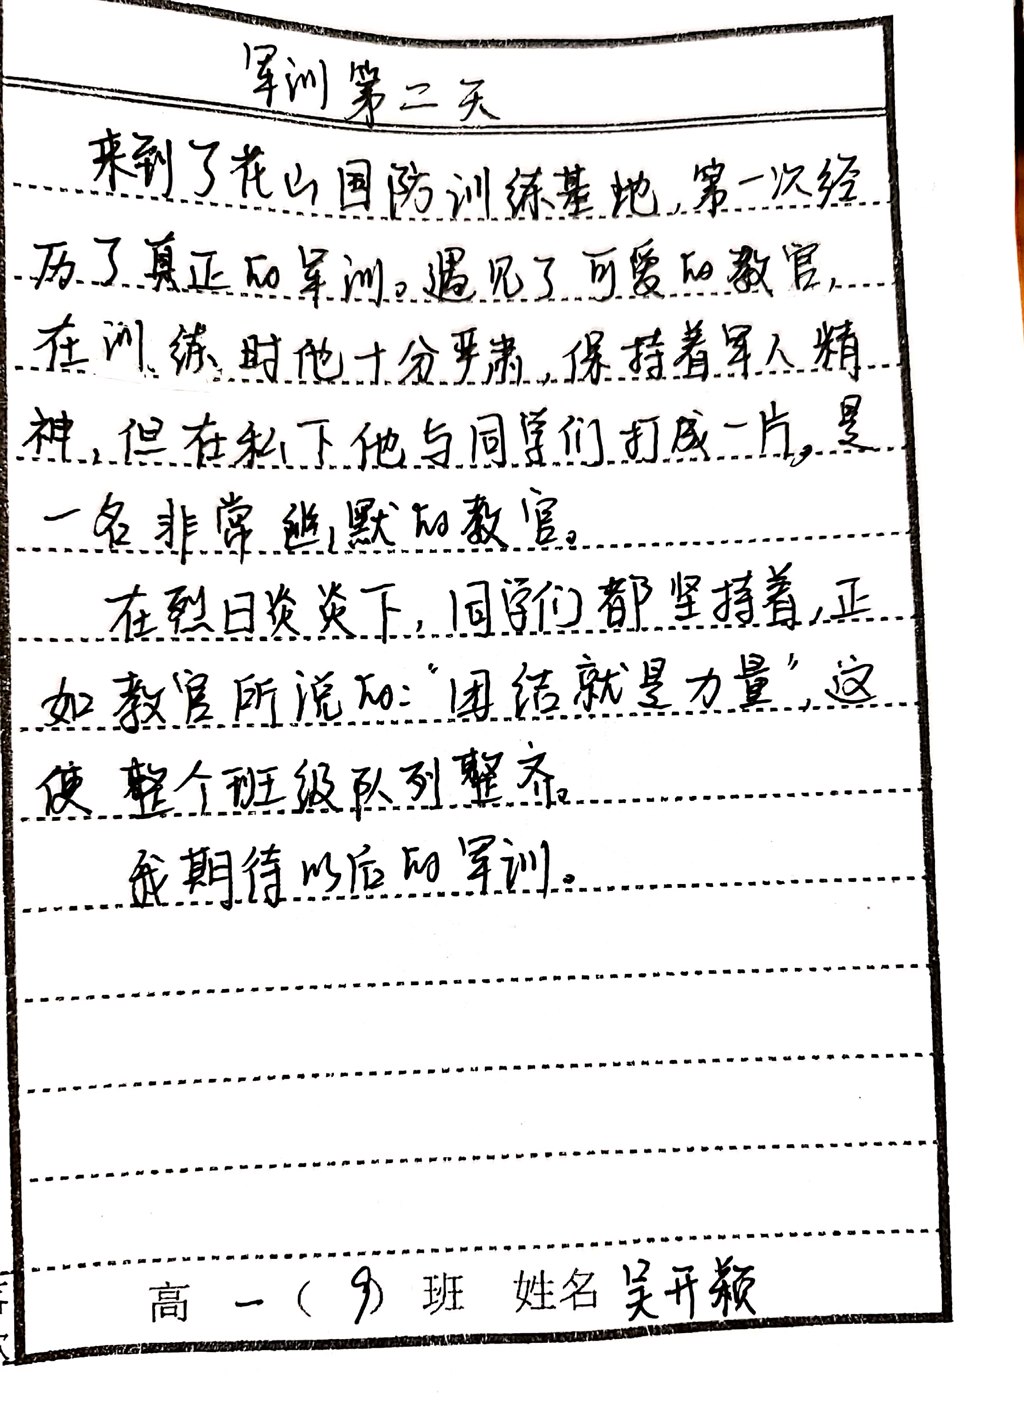 军训第二天
来到了花山国防训练基地,第一次经
历了真正的军训。遇见了可爱的教官,
在训练时他十分严肃,保持着军人精
神,但在私下他与同学们打成一片,是
一名非常幽默的教官。
在烈日炎炎下,同学们都坚持着,正
如教官所说的:“团结就是力量”,这
使整个班级队列整齐。
我期待以后的军训。
高一(9)班 姓名吴开颖